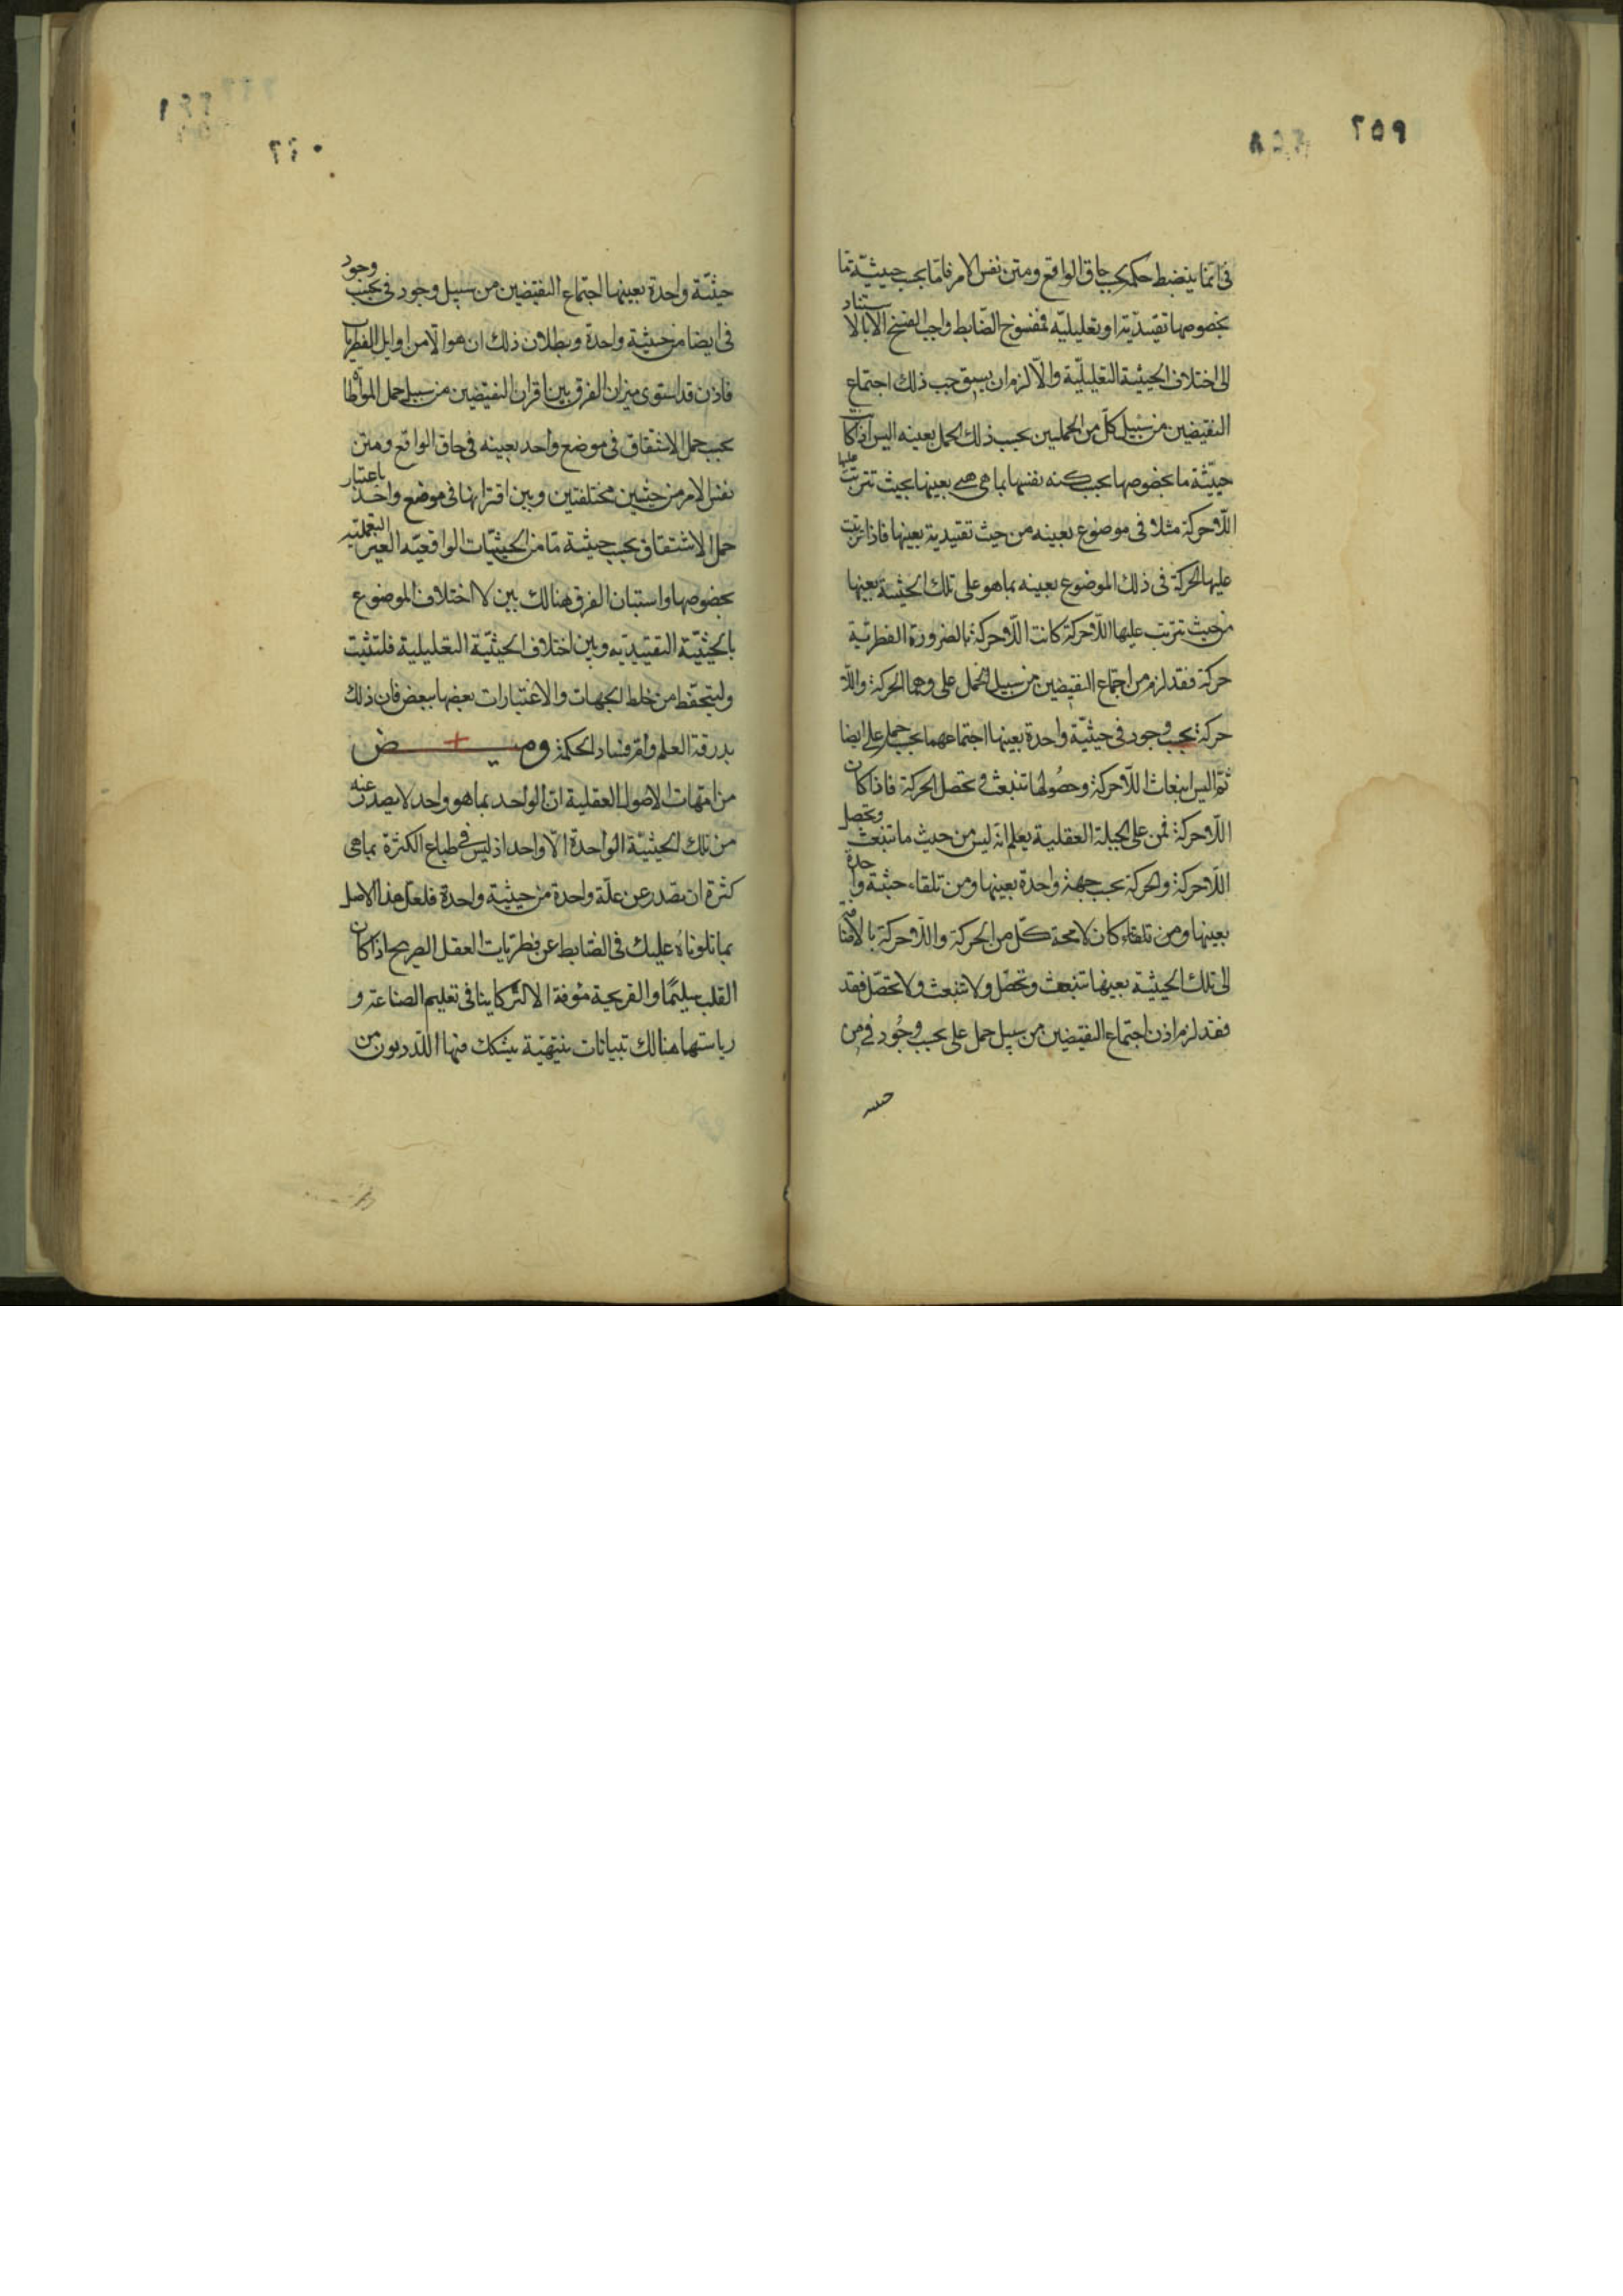 ٢٥٩
فى انما ينضبط حكمه بحسب حاق الواقع ومتن نفس الامر فاما بحسب حيثية ما
بخصوصها تقييدية او تعليلية فمفسوخ الضابط واجب الفسخ الا بالاستناد
الى اختلاف الحيثية التعليلية والا لزم ان يسبق حسب ذلك اجتماع
النقيضين من سبيل كل من الحملين بحسب ذلك الحمل بعينه اليس اذا كانت
حيثية ما بخصوصها بحسب كنه نفسها بما هى هى بعينها بحيث تترتب عليها
اللاحركة مثلا فى موضوع بعينه من حيث تقييدية بعينها فاذا ترتبت
عليها الحركة فى ذلك الموضوع بعينه بما هو على تلك الحيثية بعينها
من حيث تترتب عليها اللاحركة كانت اللاحركة بالضرورة الفطرية
حركة فقد لزم من اجتماع النقيضين من سبيل الحمل على وهما الحركة واللا
حركة بحسب وجود فى حيثية واحدة بعينها اجتماعهما بحسب حمل على ايضا
ثم اليس انبعاث اللاحركة وحصولها تنبعث و تحصل الحركة فاذا كان
اللاحركة فمن على الجبلة العقلية يعلم انه ليس من حيث ما تنبعث وتحصل
اللاحركة والحركة بحسب جهة واحدة بعينها ومن تلقاء حيثية واحدة
بعينها ومن تلقاء كان لا محة كل من الحركة واللاحركة بالاضافة
الى تلك الحيثية بعينها تنبعث وتحصل ولا تنبعث ولا تحصل فقد
فقد لزم اذن اجتماع النقيضين من سبيل حمل على بحسب وجود فى من
حيثية
٢٦٠
حيثية واحدة بعينها اجتماع النقيضين من سبيل وجود فى بحسب وجود
فى ايضا من حيثية واحدة وبطلان ذلك ان هو الا من اوايل الفطريات
فاذن قد استوى ميزان الفرق بين اقران النقيضين من سبيل حمل المواطاة
بحسب حمل الاشتقاق فى موضع واحد بعينه فى حاق الواقع ومتن
نفس الامر من حيثين مختلفتين وبين اقترانها فى موضع واحد باعتبار
حمل الاشتقاق بحسب حيثية ما من الحيثيات الواقعية الغير التعملية
بخصوصها واستبان الفرق هنالك بين لا اختلاف الموضوع
بالحيثية التقييدية وبين اختلاف الحيثية التعليلية فلتثبت
وليتحفظ من خلط الجهات والاعتبارات بعضها ببعض فان ذلك
بدرقة العلم وام فساد الحكمة وميــض
من امهات الاصول العقلية ان الواحد بما هو واحد لا يصدر عنه
من تلك الحيثية الواحدة الا واحد اذ ليس فى طباع الكثرة بما هى
كثرة ان تصدر عن علة واحدة من حيثية واحدة فلعل هذا الاصل
بما تلوناه عليك فى الضابط عن فطريات العقل الصريح اذا كان
القلب سليما والقريحة مؤفة الا لشركاينا فى تعليم الصناعة و
رياستها هنالك تبيانات تنبيهية يشكك فيها اللددريون من